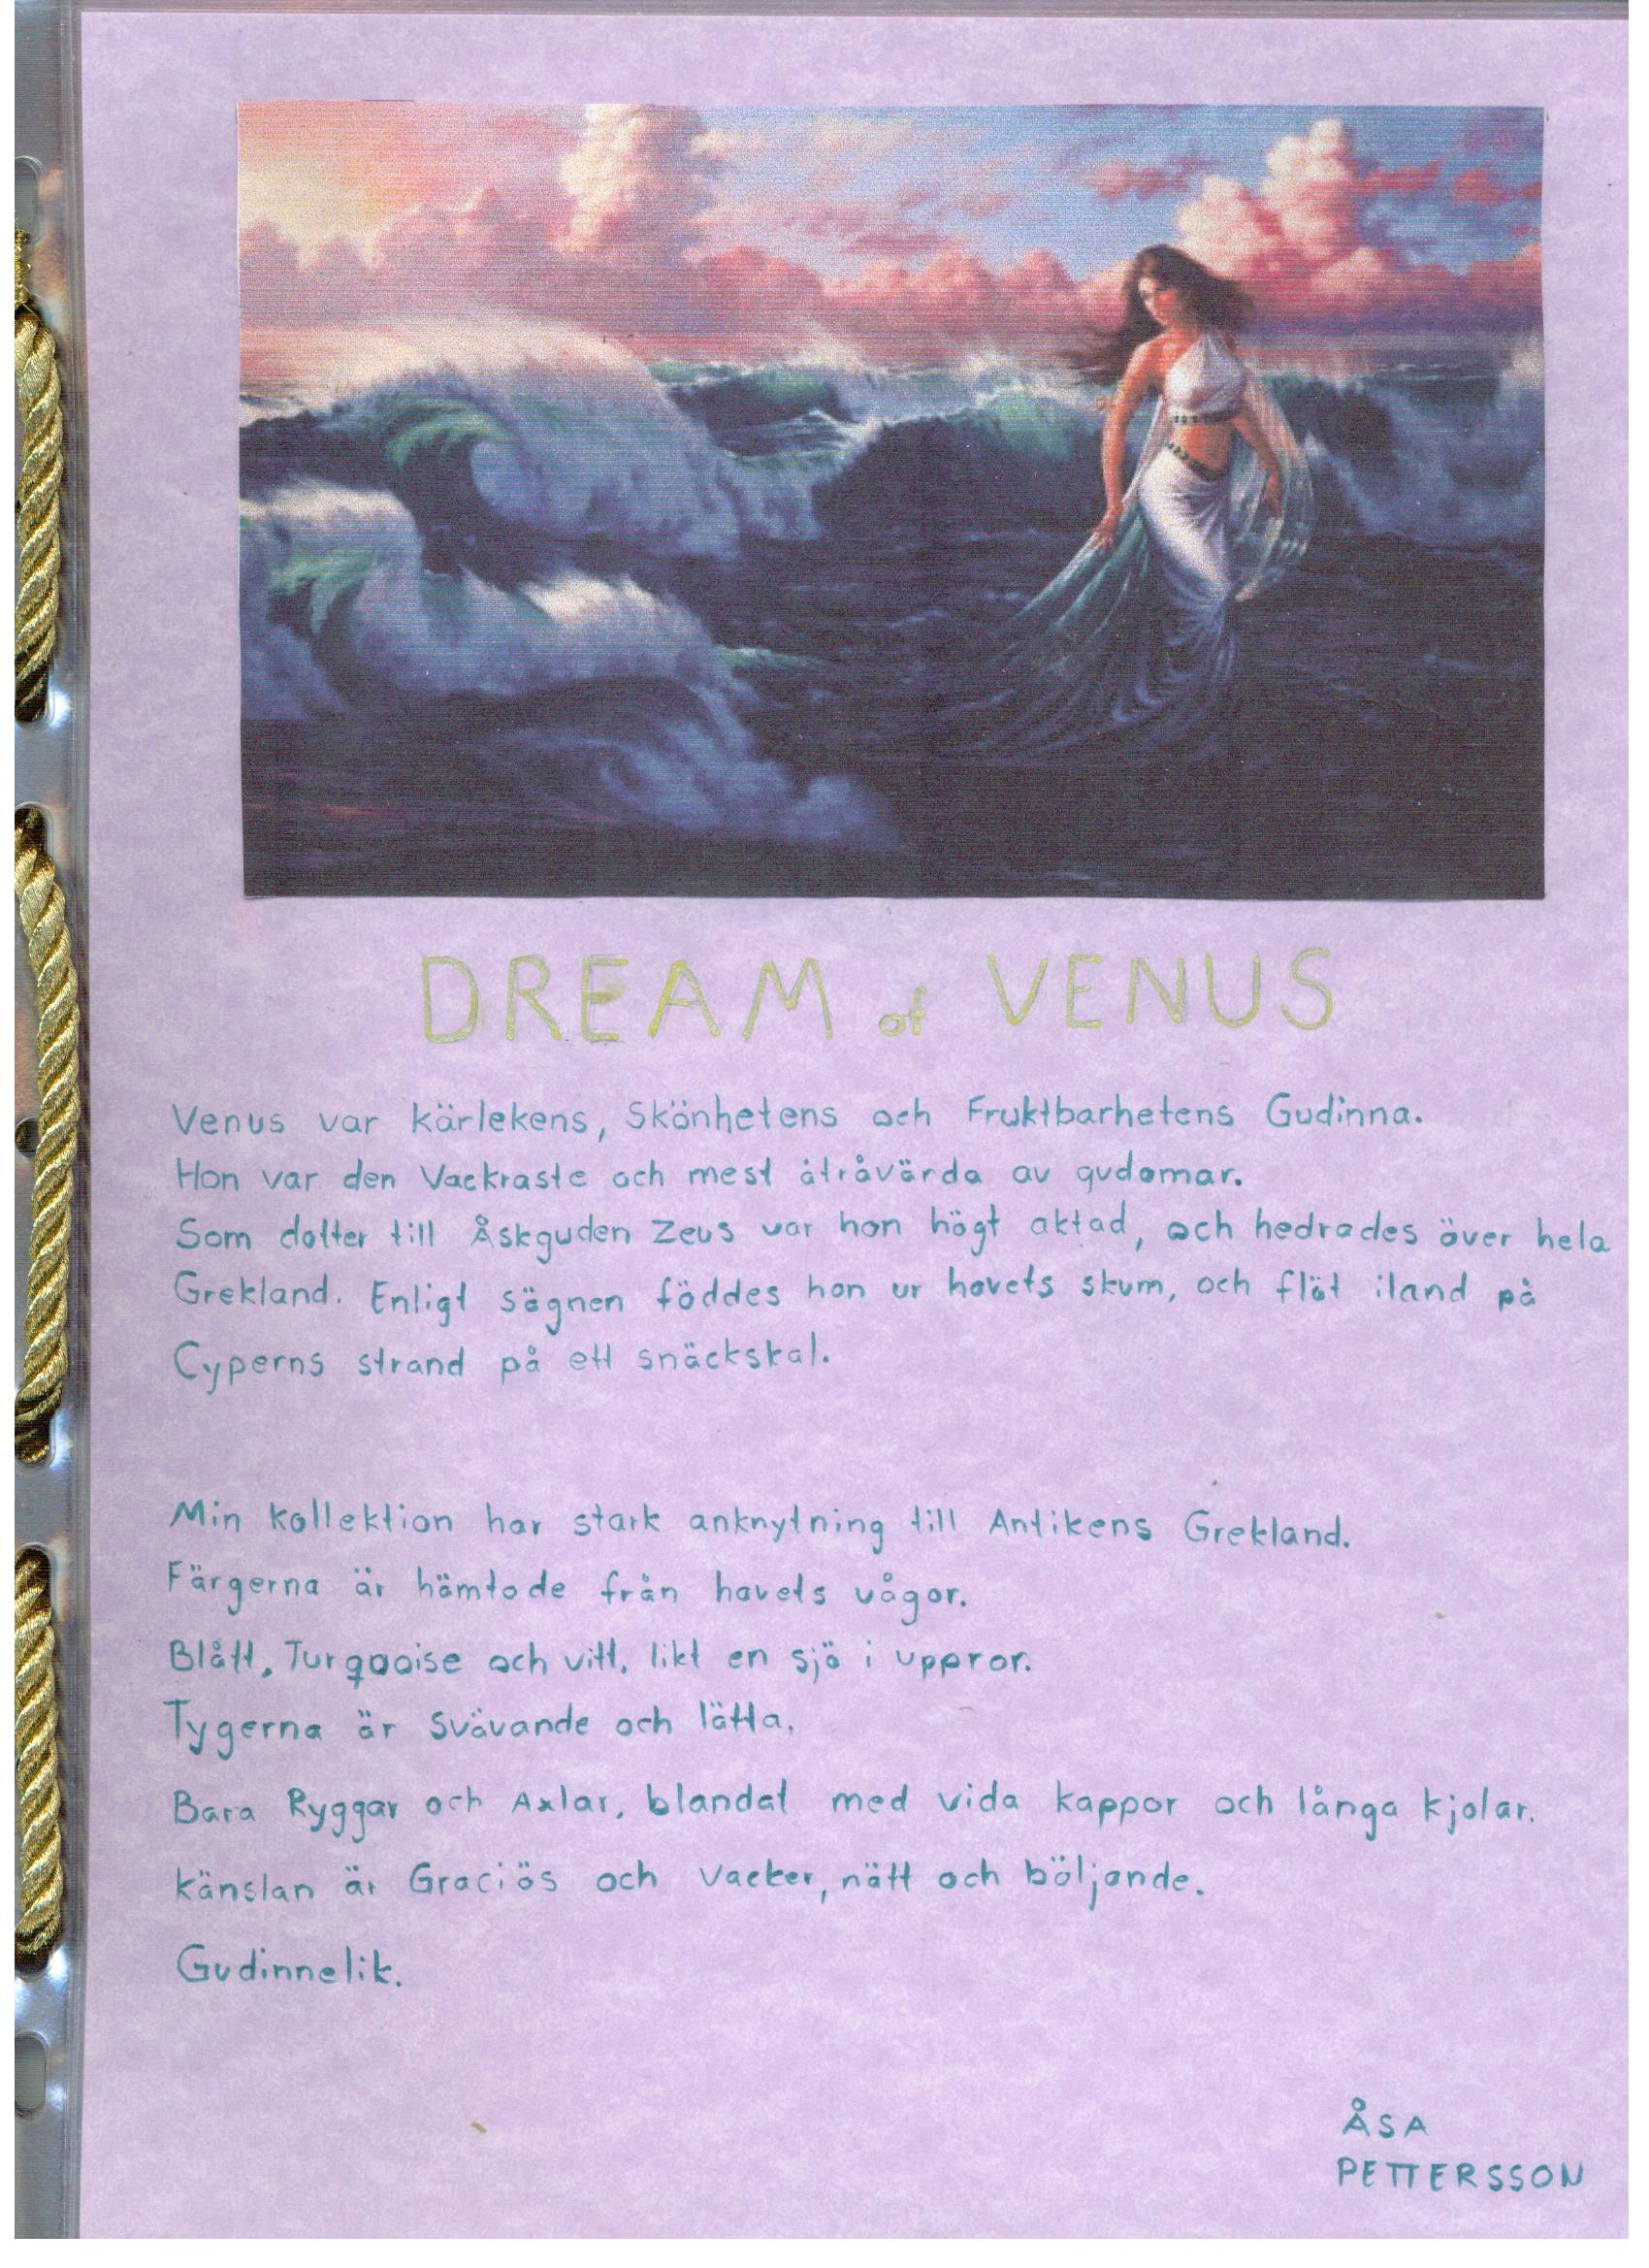 DREAM of VENUS
Venus var kärlekens, Skönhetens och Fruktbarhetens Gudinna.
Hon var den Vackraste och mest åtråvärda av gudomar.
Som dotter till Åskguden Zeus var hon högt aktad, och hedrades över hela
Grekland. Enligt sägnen föddes hon ur havets skum, och flöt iland på
Cyperns strand på ett snäckskal.
Min kollektion har stark anknytning till Antikens Grekland.
Färgerna är hämtade från havets vågor.
Blått, Turqouise och vitt, likt en sjö i uppror.
Tygerna är Svävande och lätta.
Bara Ryggar och Axlar, blandat med vida kappor och långa kjolar.
känslan är Graciös och vacker, nätt och böljande.
Gudinnelik.
ÅSA
PETTERSSON